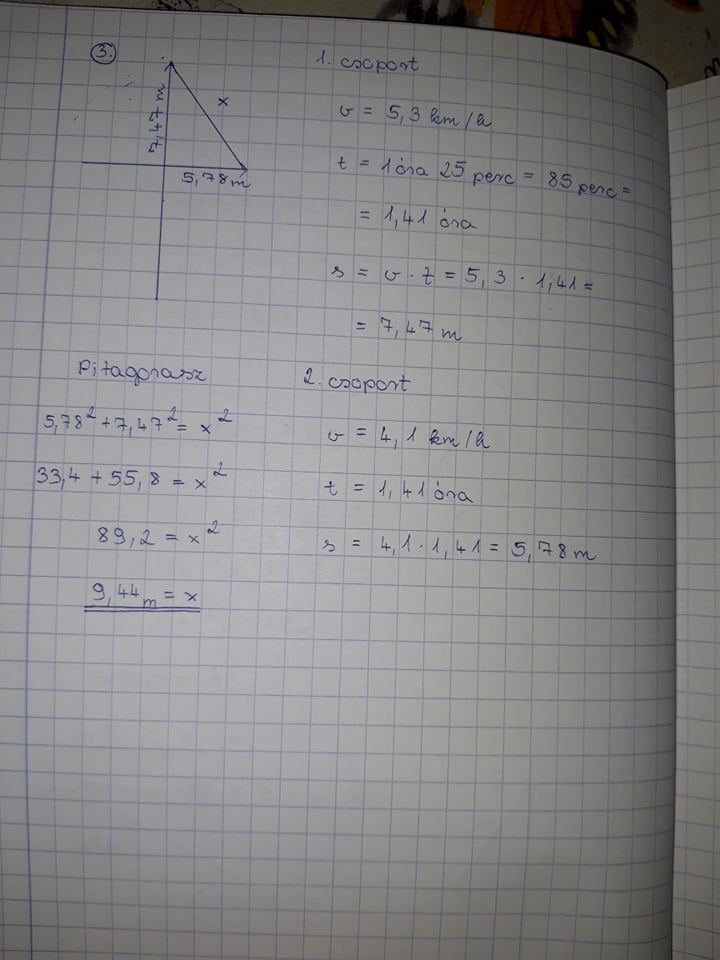 3.
7,47 m
x
5,78 m
1. csoport
v = 5,3 km/h
t = 1 óra 25 perc = 85 perc =
= 1,41 óra
s = v · t = 5,3 · 1,41 =
= 7,47 m
Pitagorasz
5,78² + 7,47² = x²
33,4 + 55,8 = x²
89,2 = x²
9,44 m = x
2. csoport
v = 4,1 km/h
t = 1,41 óra
s = 4,1 · 1,41 = 5,78 m